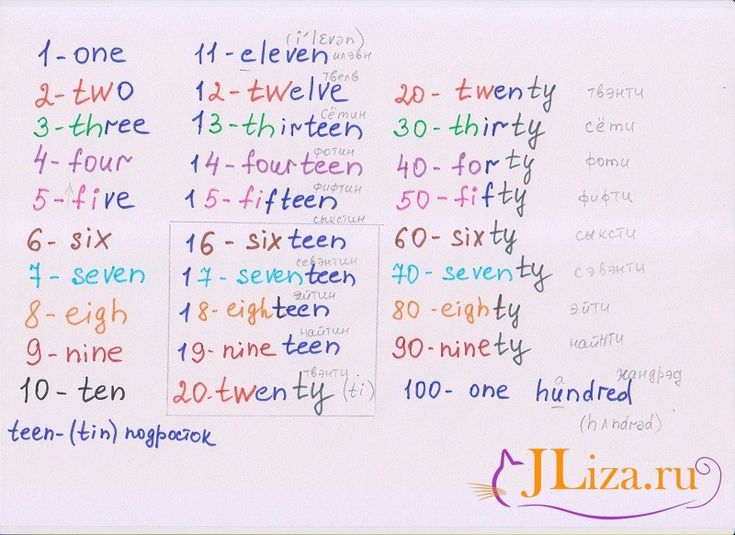 (i'lεvən)
1- one 11- eleven илэвн
твелв
2- two 12- twelve 20- twenty твэнти
сётин
3- three 13- thirteen 30- thirty сёти
фотин
4- four 14- fourteen 40- forty фоти
фифтин
5- five 15- fifteen 50- fifty фифти
сыкстин
6- six 16- sixteen 60- sixty сыксти
севэнтин
7- seven 17- seventeen 70- seventy сэвэнти
эйтин
8- eigh 18- eighteen 80- eighty эйти
найтин
9- nine 19- nineteen 90- ninety найнти
твэнти
10- ten 20. twenty (ti) 100- one hundred
а хандрэд
teen- (tin) подросток (hʌndrəd)
JLiza.ru